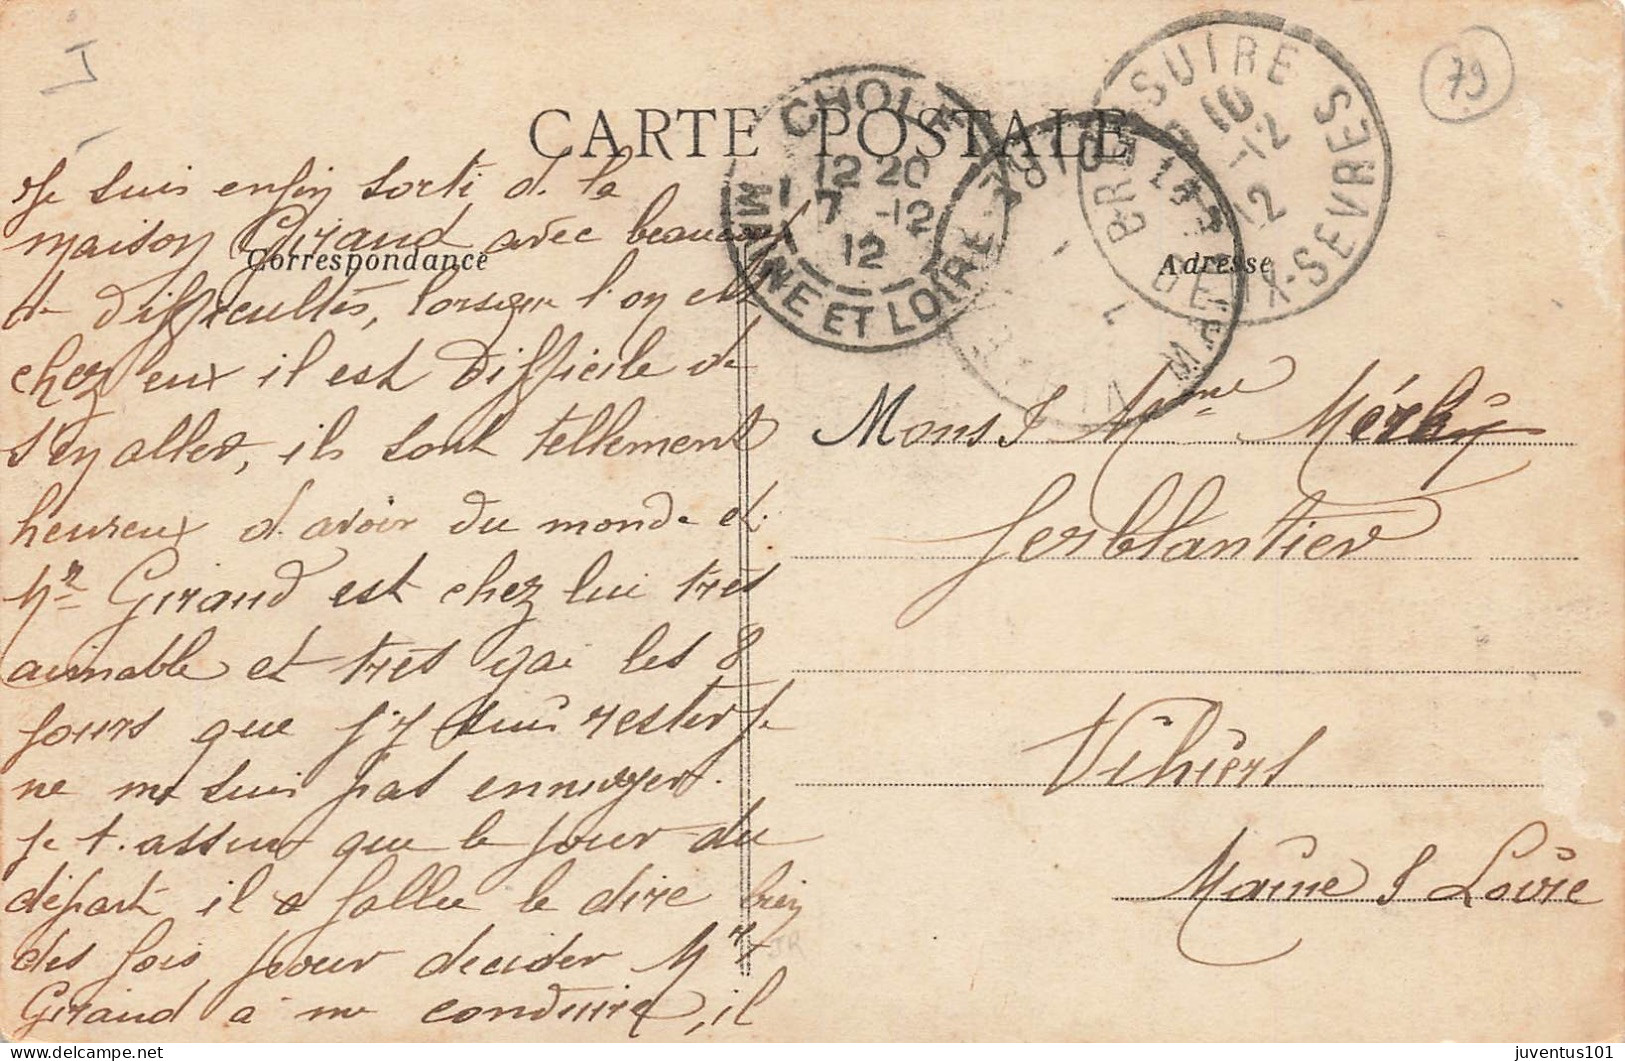 CARTE POSTALE
Correspondance
Adresse
79
CHOLET
12 20
7 -12
12
MAINE ET LOIRE
BRESSUIRE
10
-12
12
DEUX-SEVRES
Je suis enfin sorti de la
maison Giraud avec beaucoup
de difficultés, lorsque l'on est
chez eux il est difficile de
s'en aller, ils sont tellement
heureux d'avoir du monde et
Mr Giraud est chez lui très
aimable et très gai les 8
jours que j'y suis rester je
ne me suis pas ennuyer.
je t'assure que le jour du
départ il a fallu le dire bien
des fois pour decider Mr
Giraud à me conduire, il
Mons & Mme
Ferblantier
Vihiers
Maine & Loire
juventus101